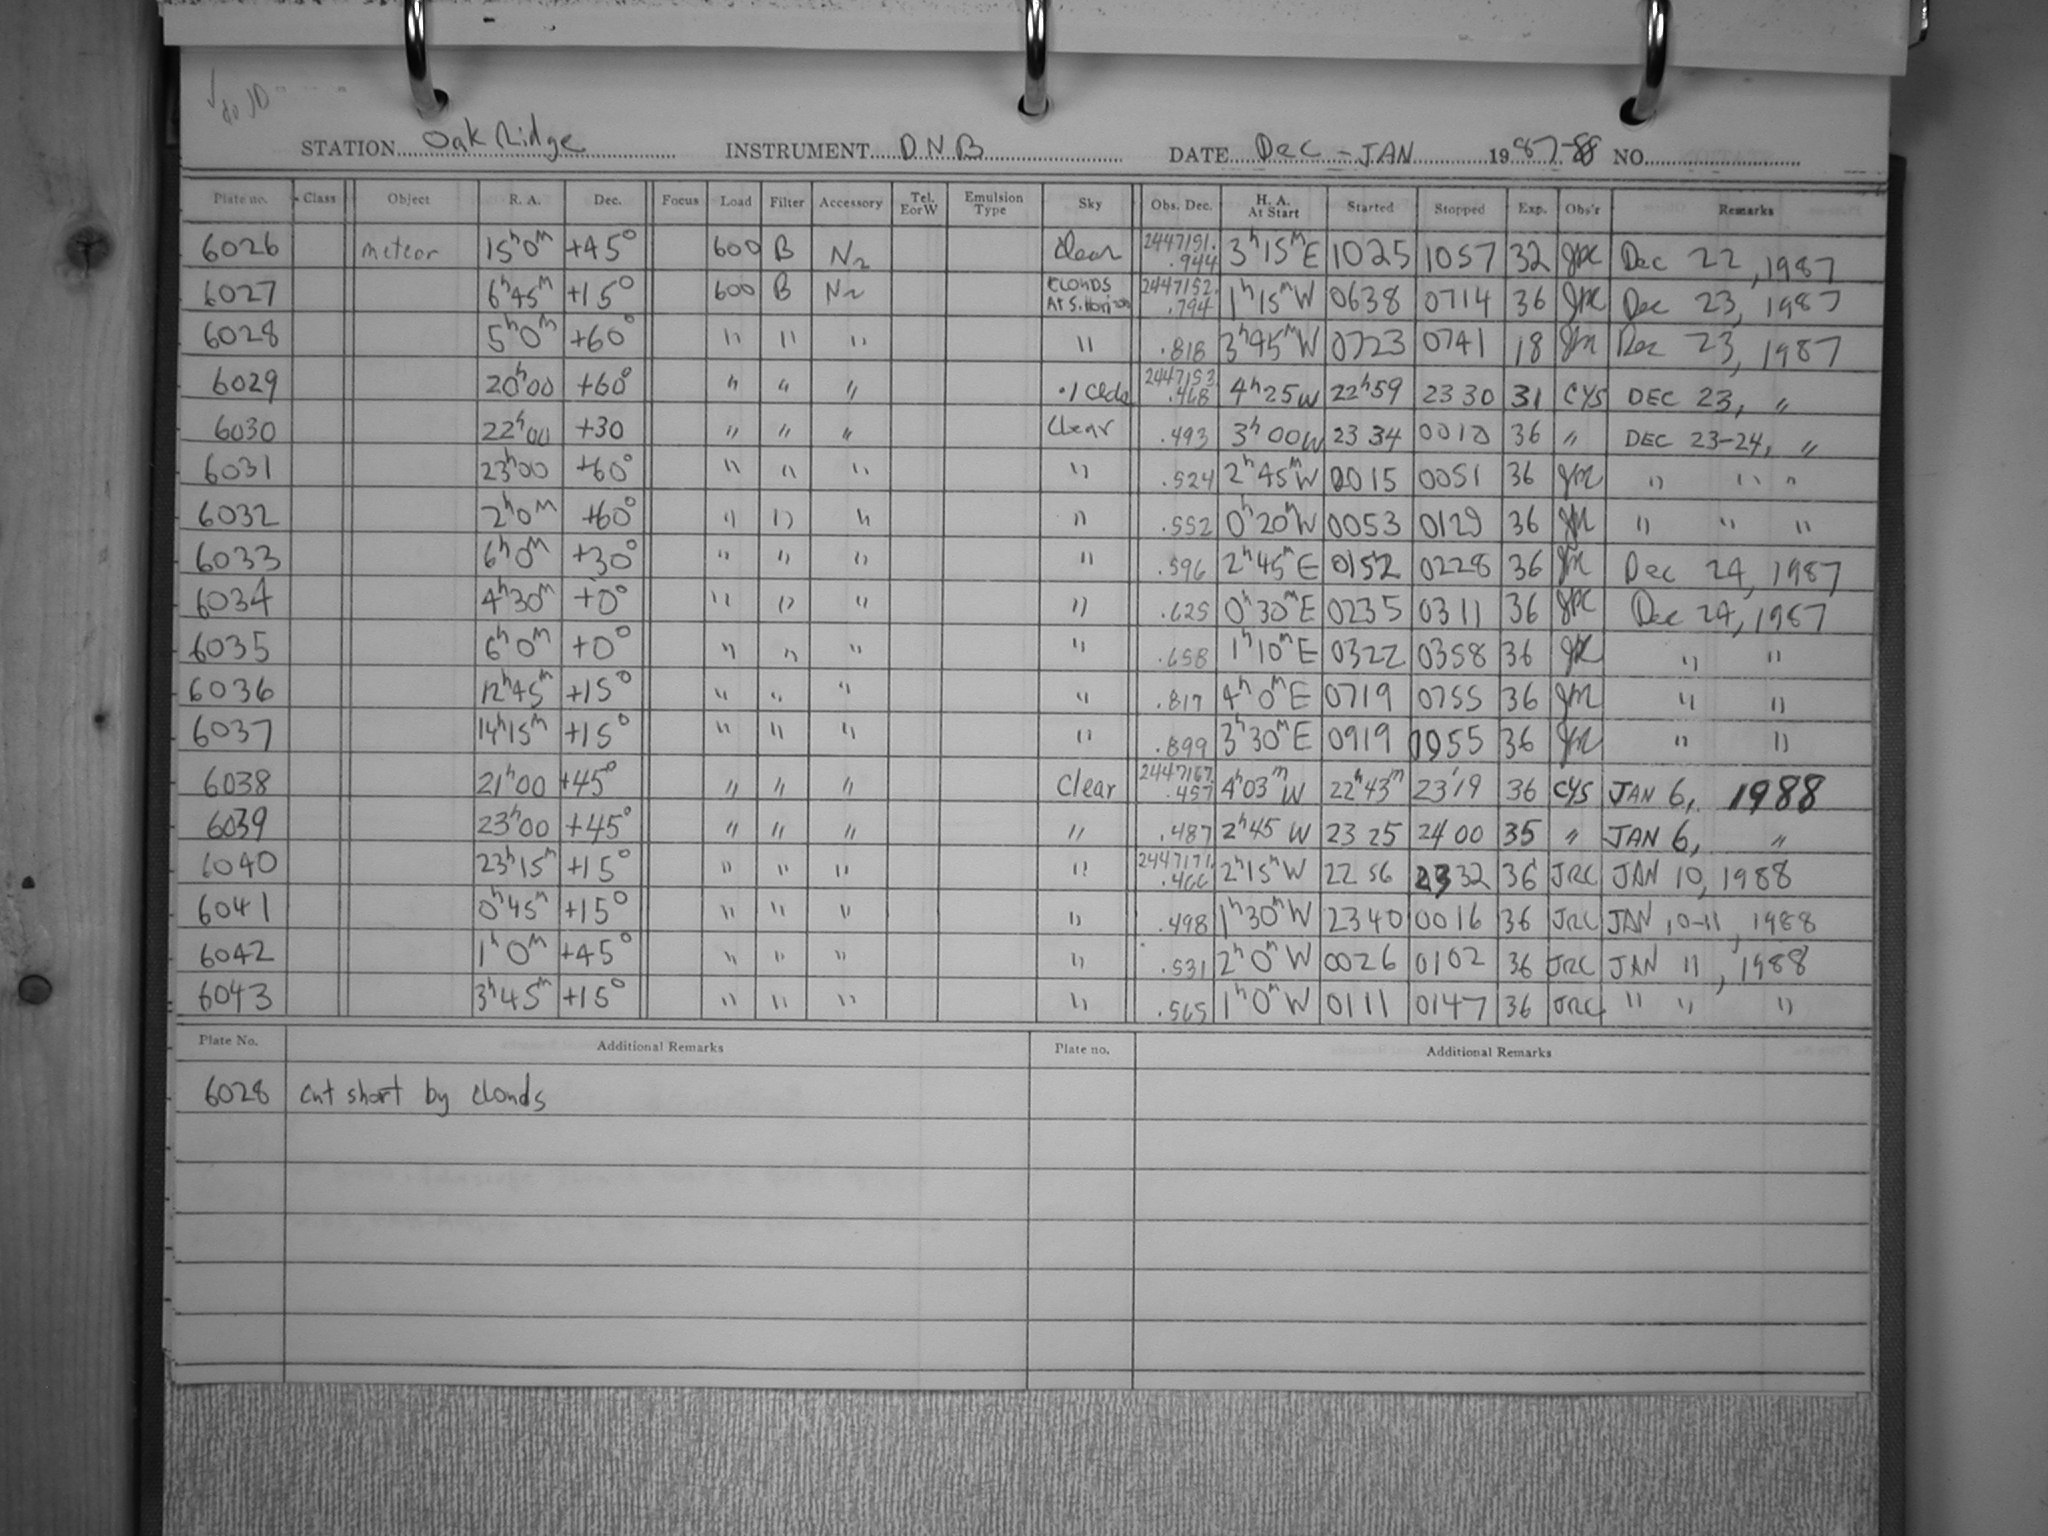 √ do JD
STATION Oak Ridge INSTRUMENT DNB DATE Dec - JAN 1987-88 NO.
Plate no. Class Object R. A. Dec. Focus Load Filter Accessory Tel. E or W Emulsion Type Sky Obs. Dec. H. A. At Start Started Stopped Exp. Obs'r Remarks
6026 meteor 15h 0m +45° 600 B N2 Clear 2447151.944 3h 15m E 1025 1057 32 JRC Dec 22, 1987
6027 6h 45m +15° 600 B N2 CLOUDS At S. Horizon 2447152.794 1h 15m W 0638 0714 36 JRC Dec 23, 1987
6028 5h 0m +60° " " " " .818 3h 45m W 0723 0741 18 JRC Dec 23, 1987
6029 20h 00 +60° " " " .1 Clds 2447153.468 4h 25 W 22h 59 23 30 31 CYS DEC 23, "
6030 22h 00 +30 " " " Clear .493 3h 00 W 23 34 0010 36 " DEC 23-24, "
6031 23h 00 +60° " " " " .524 2h 45m W 0015 0051 36 JRC " " "
6032 2h 0m +60° " " " " .552 0h 20m W 0053 0129 36 JRC " " "
6033 6h 0m +30° " " " " .596 2h 45m E 0152 0228 36 JRC Dec 24, 1987
6034 4h 30m +0° " " " " .625 0h 30m E 0235 0311 36 JRC Dec 24, 1987
6035 6h 0m +0° " " " " .658 1h 10m E 0322 0358 36 JRC " "
6036 12h 45m +15° " " " " .817 4h 0m E 0719 0755 36 JRC " "
6037 14h 15m +15° " " " " .899 3h 30m E 0919 0955 36 JRC " "
6038 21h 00 +45° " " " Clear 2447167.457 4h 03m W 22h 43m 23 19 36 CYS JAN 6, 1988
6039 23h 00 +45° " " " " .487 2h 45 W 23 25 24 00 35 " JAN 6, "
6040 23h 15m +15° " " " " 2447171.466 2h 15m W 22 56 2332 36 JRC JAN 10, 1988
6041 0h 45m +15° " " " " .498 1h 30m W 2340 0016 36 JRC JAN 10-11, 1988
6042 1h 0m +45° " " " " .531 2h 0m W 0026 0102 36 JRC JAN 11, 1988
6043 3h 45m +15° " " " " .565 1h 0m W 0111 0147 36 JRC " " "
Plate No. Additional Remarks Plate no. Additional Remarks
6028 cut short by clouds